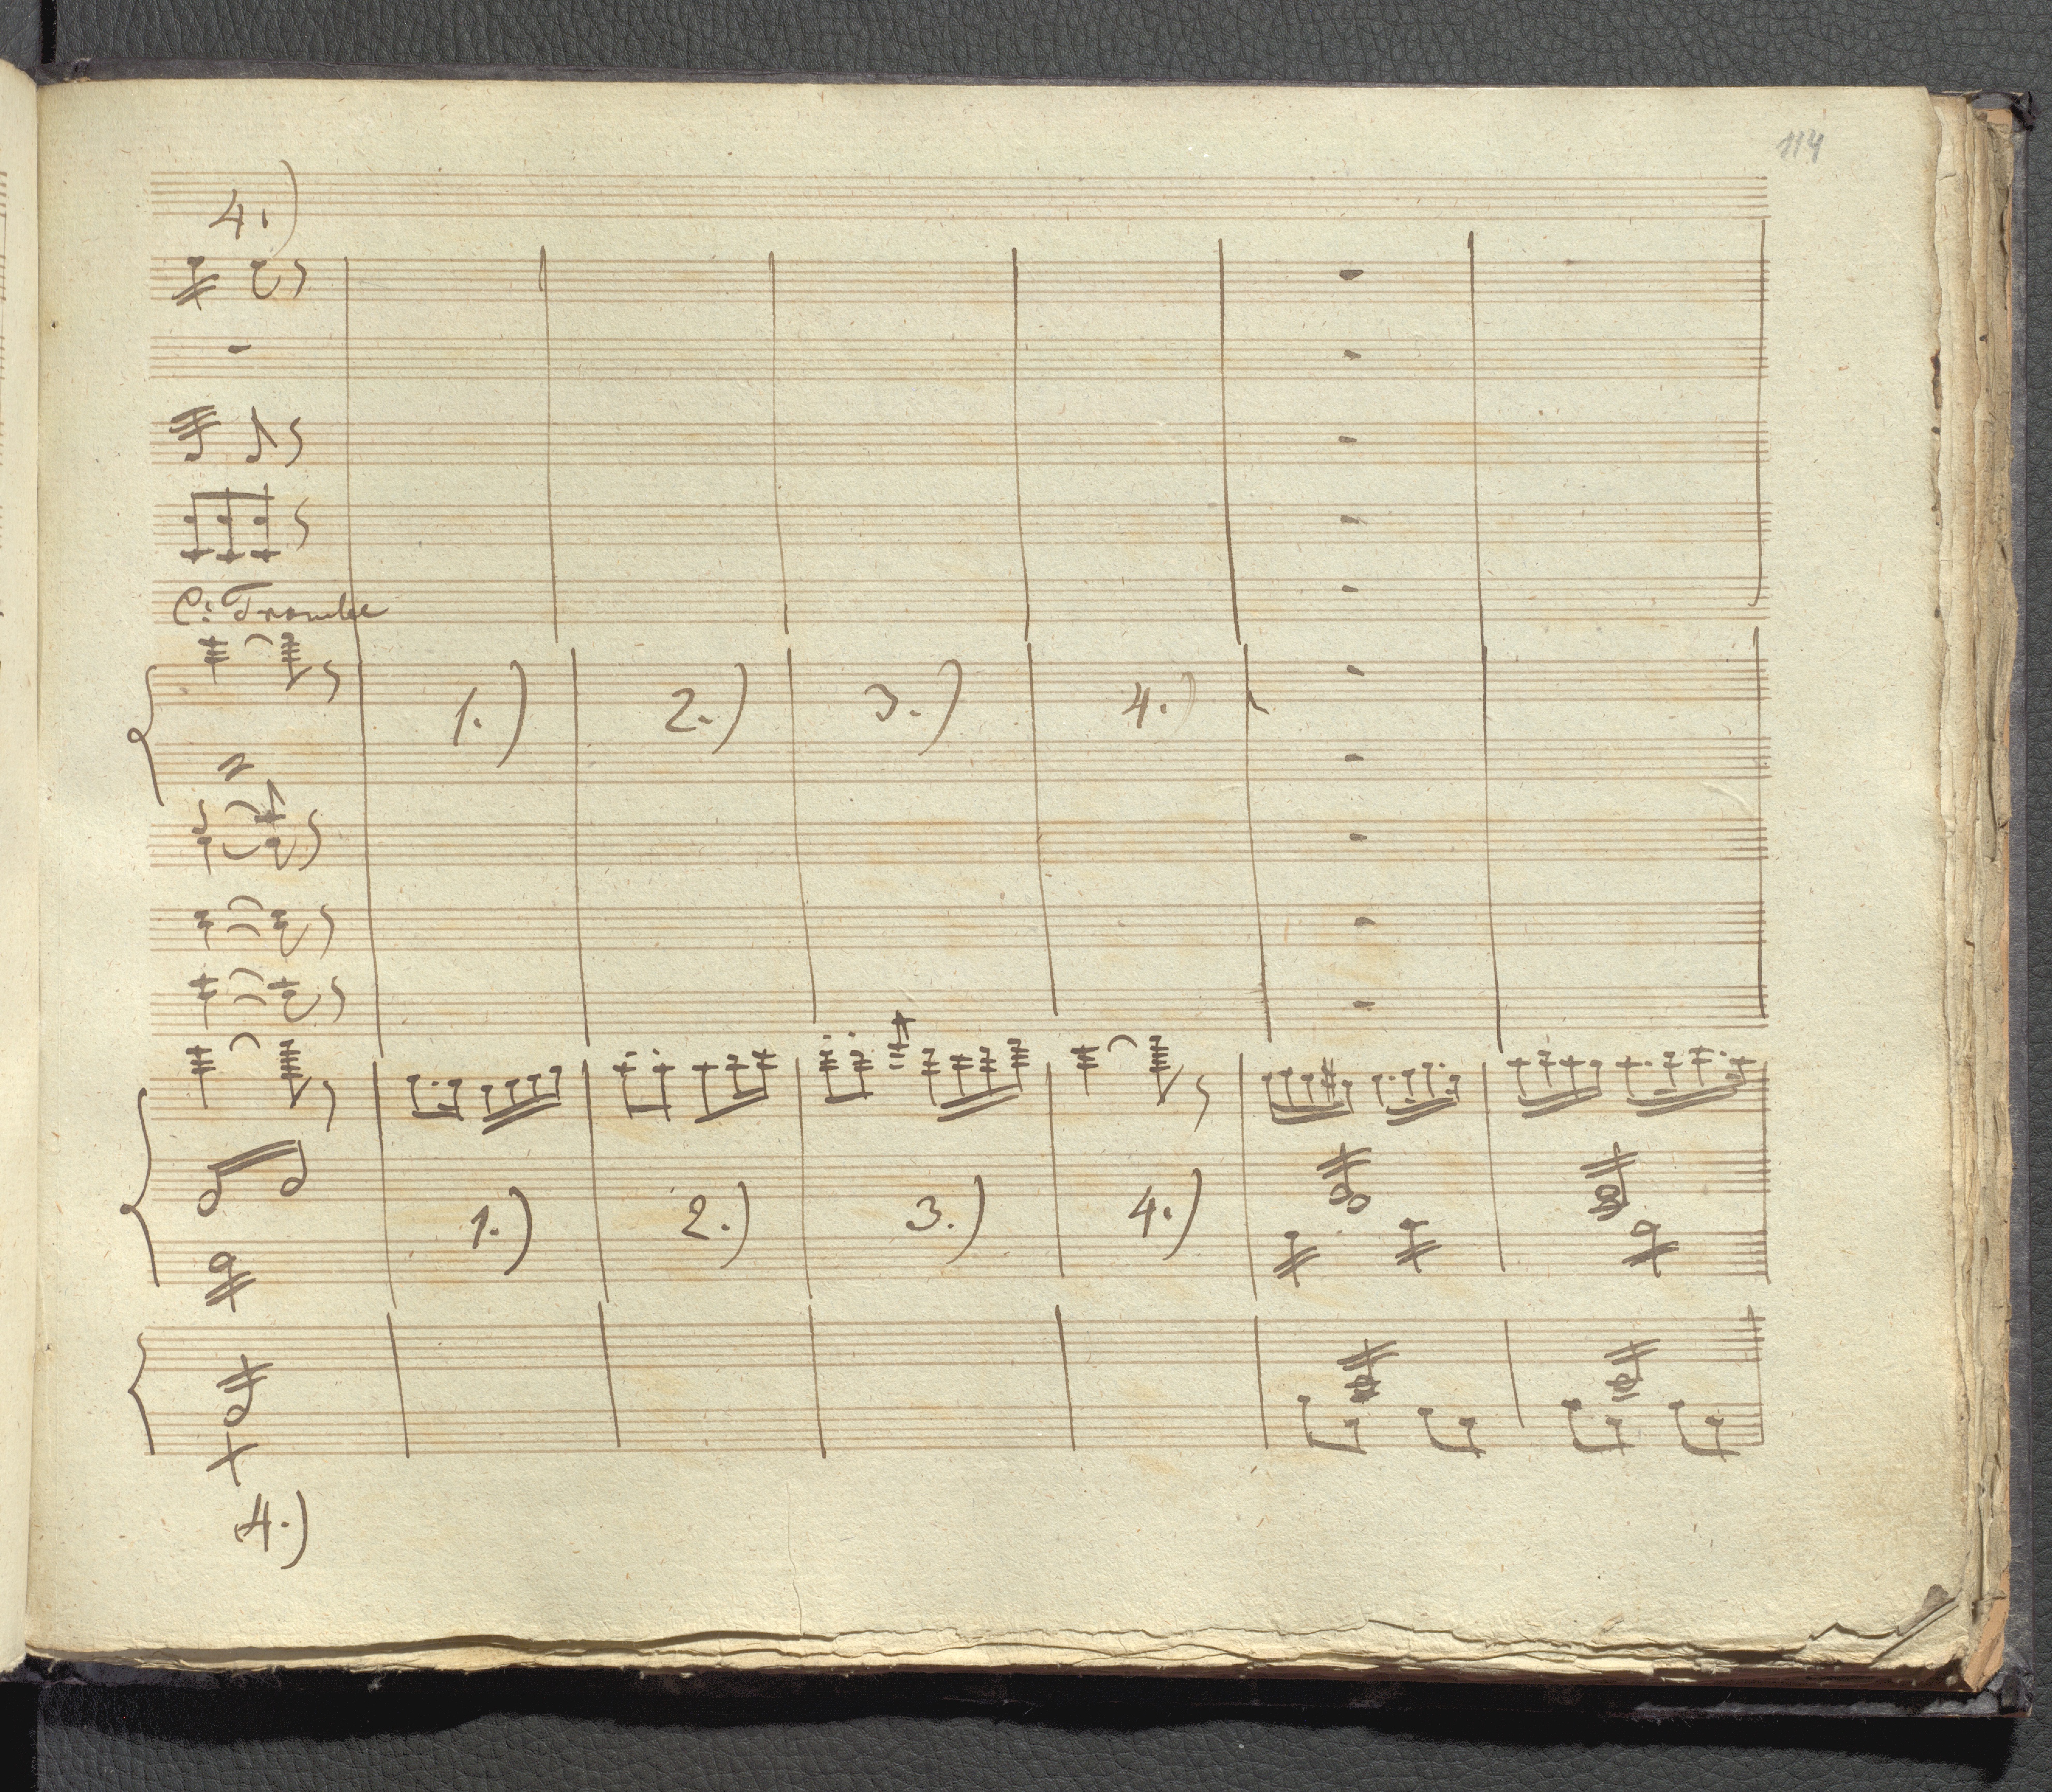 114
4.)
C: Trombe
1.) 2.) 3.) 4.)
1.) 2.) 3.) 4.)
4.)